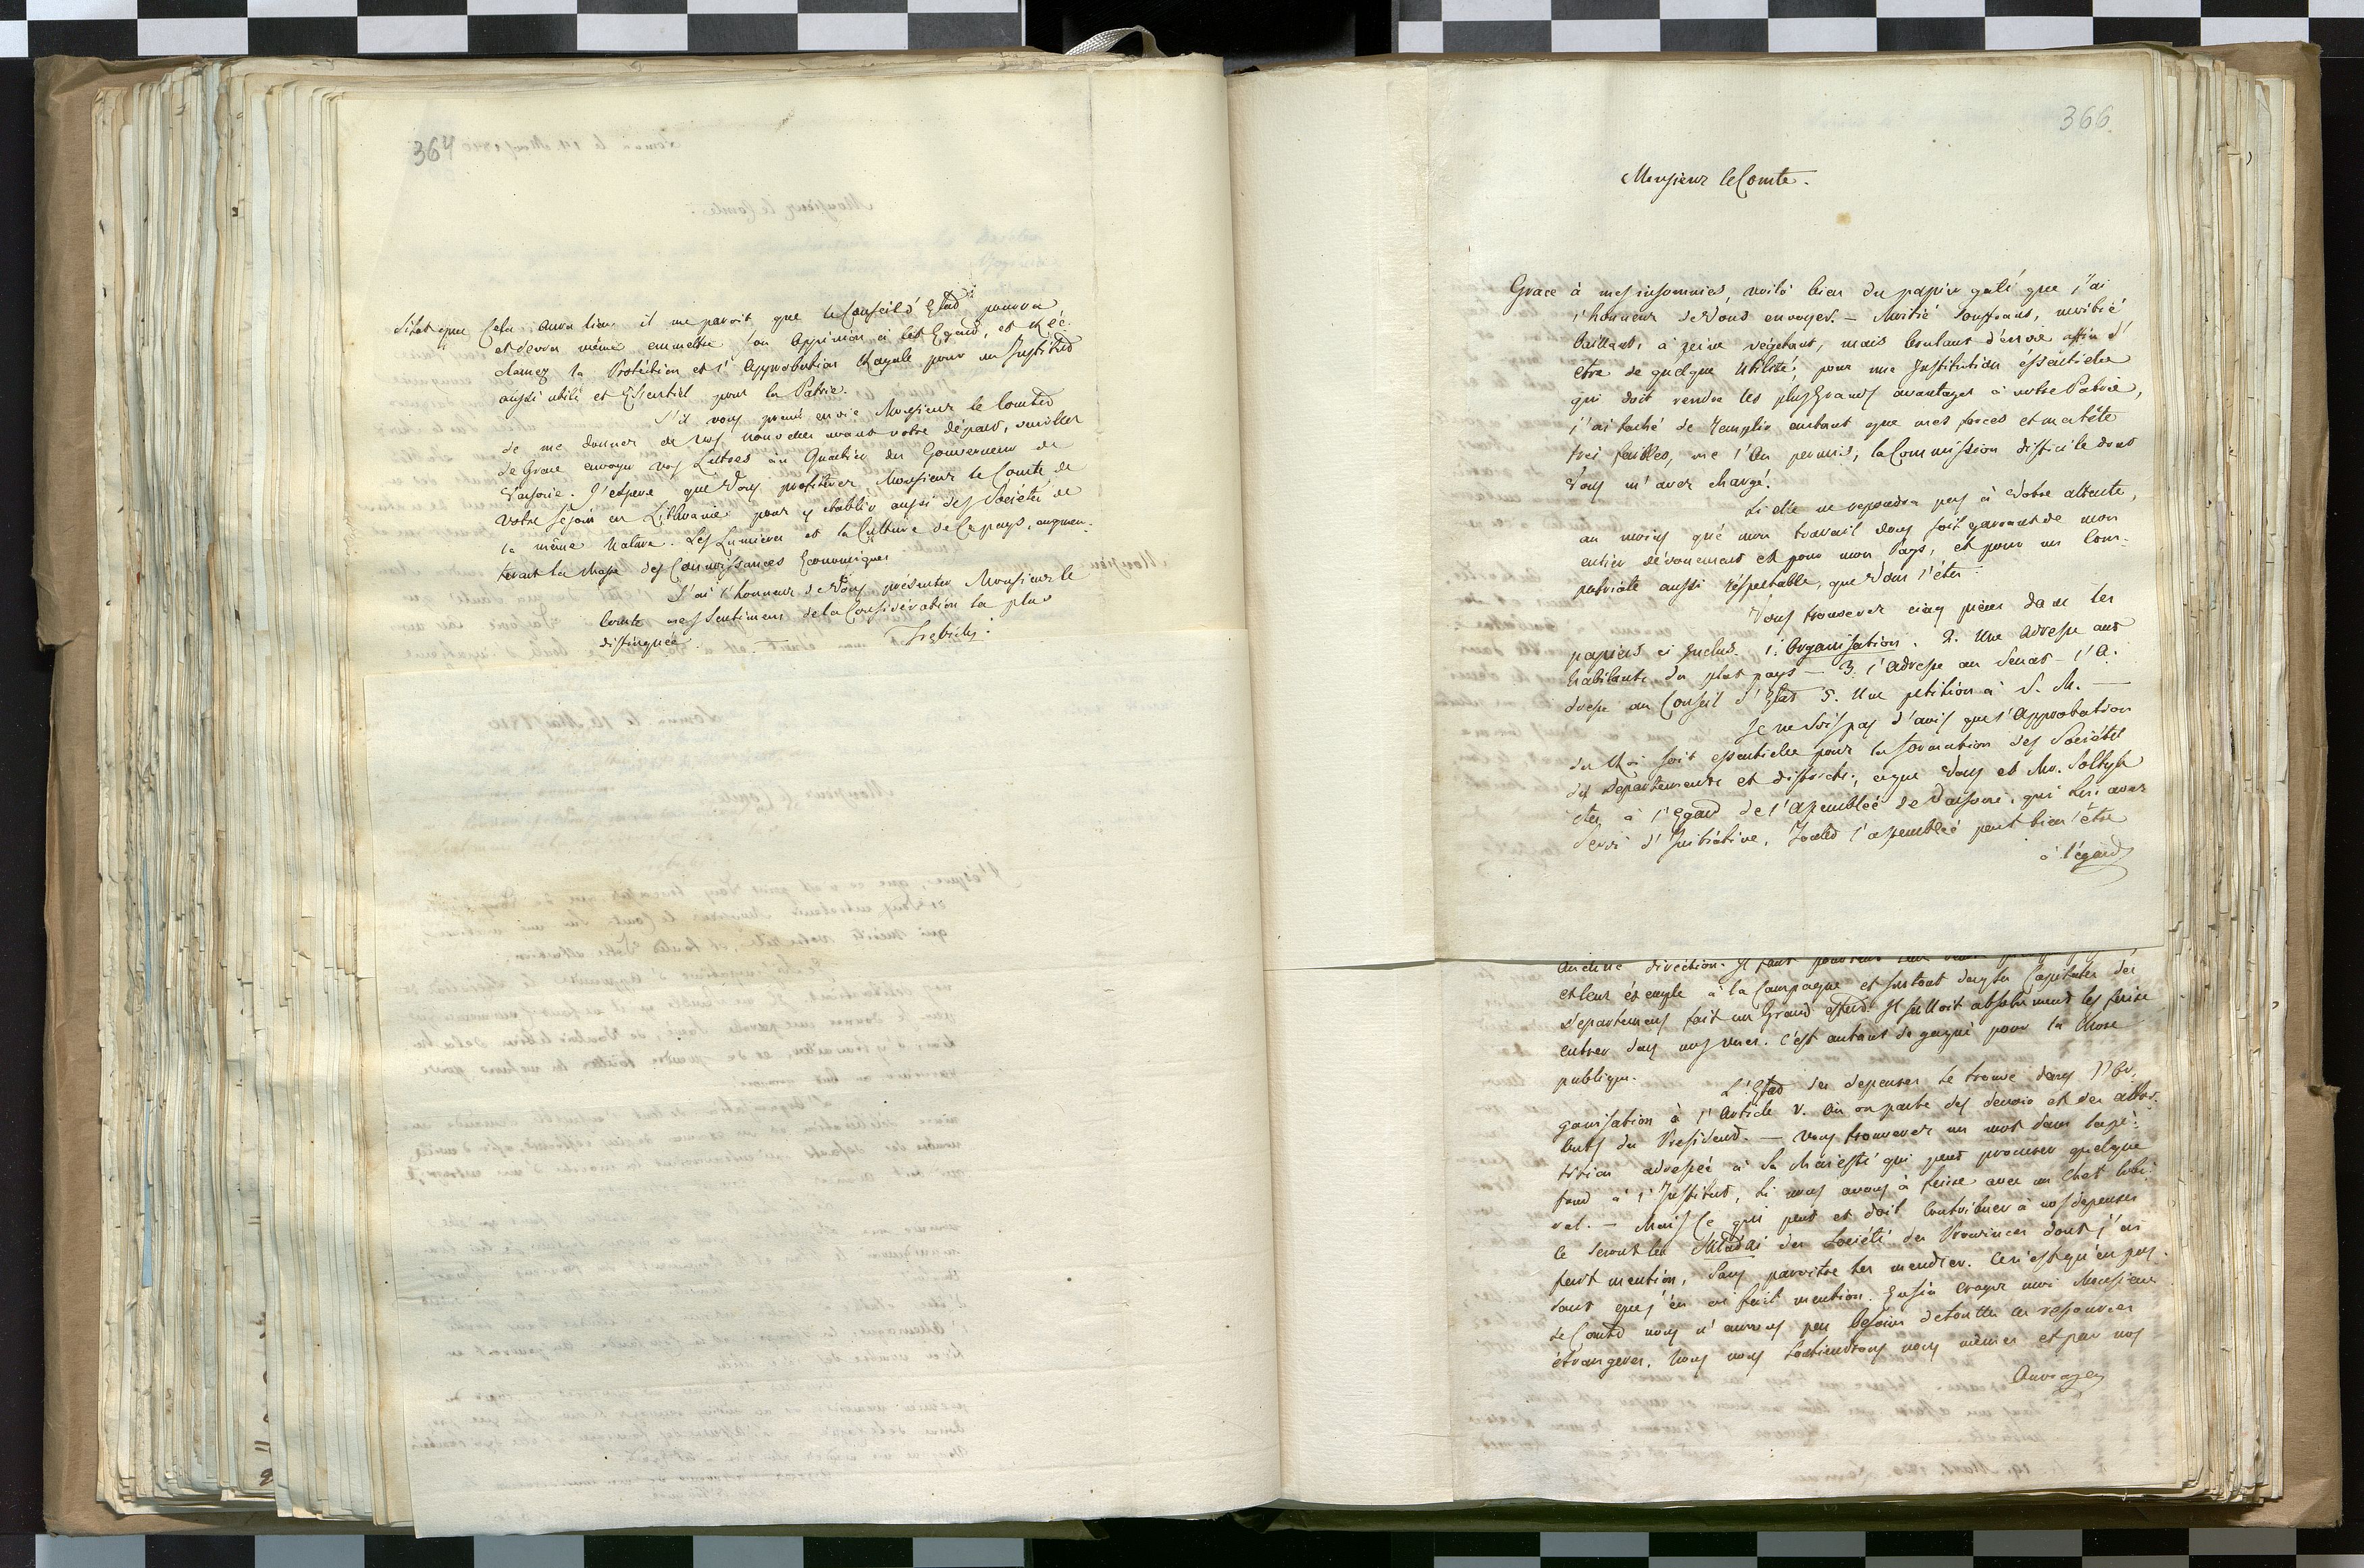 364
Sitot que Cela aura lieu il me paroit que le Conseil d'Etad pourra
et devra même emmettre son Oppinion à cet Egard, et Ré-
clamez la Protection et l'Approbation Royale pour un Institud
aussi utile et Essentiel pour la Patrie.
S'il vous prend envie Monsieur le Comted
de me donner de vos nouvelles avant votre départ, veuillez
de Grace envoyer vos Lettres au Quartier du Gouverneur de
Varsovie. J'espere que Vous profiterez Monsieur le Comte de
votre sejour en Lithuanie pour y etablir aussi des Societé de
la même Nature. Les Lumieres et la Culture de Ce pays, augmen-
teront la masse des Connoissances Economiques
J'ai l'honneur de Vous présenter Monsieur le
Comte mes Sentimens de la Consideration la plus
distinguée.
366.
Monsieur le Comte.
Grace à mes insomnies, voilà bien du papier gaté que j'ai
l'honneur de Vous envoyer. – Moitié souffrant, moitié
baillant, à peine végetant, mais brulant d'envie affin d'
etre de quelque Utilité, pour une Institution éssentielle
qui doit rendre les plus grands avantages à notre Patrie,
j'ai taché de remplir autant que mes forces et ma tête
très faibles, me l'on permis, la Commission difficile dont
Vous m'avez chargé.
Si elle ne repondra pas à Votre attente,
au moins que mon travail vous soit garant de mon
entier dévouement et pour mon Pays, et pour un Com-
patriote aussi réspectable, que Vous l'étes.
Vous trouverez cinq pièces dans les
papiers ci inclus. 1. Organisation. 2. Une Adresse aux
habitants du plat pays – 3. l'Adresse au Senat – l'A-
dresse au Conseil d'Etat 5. Une petition à S. M. —
Je ne suis pas d'avis que l'Approbation
du Roi soit essentielle pour la formation des Sociétés
des Departements et districts, ce que Vous et Mr. Soltyk
etes à l'Egard de l'Assemblée de Varsovie, qui lui avez
Servi d'Initiative, l'assemblée peut bien l'être
à l'égard
Aucune direction. Il faut pourtant
et leur éxemple à la Campagne et surtout dans les Capitales des
Departemens fait un Grand effect. Il falloit absolument les faire
entrer dans nos vues. C'est autant de gagné pour la Chose
publique.
L'Etad des depenses se trouve dans l'Or-
ganisation à l'Article V. où on parle des devoirs et des attri-
buts du President. — Vous trouverez un mot dans la pé-
tition adressée à Sa Majesté qui peut procurer quelque
fond à l'Institut, si nous avons à faire avec un Chef libé-
ral. — Mais Ce qui peut et doit Contribuer à nos depenses
ce seront les Składki des Société des Provinces dont j'ai
fait mention, sans paroitre les mendier. Ce n'est qu'en pas-
sant que j'en ai fait mention. Enfin croyez moi Monsieur
le Comte nous n'aurons peu besoin de toutes ces ressources
étrangeres. Nous nous soutiendrons nous mêmes et par nos
Ouvrages